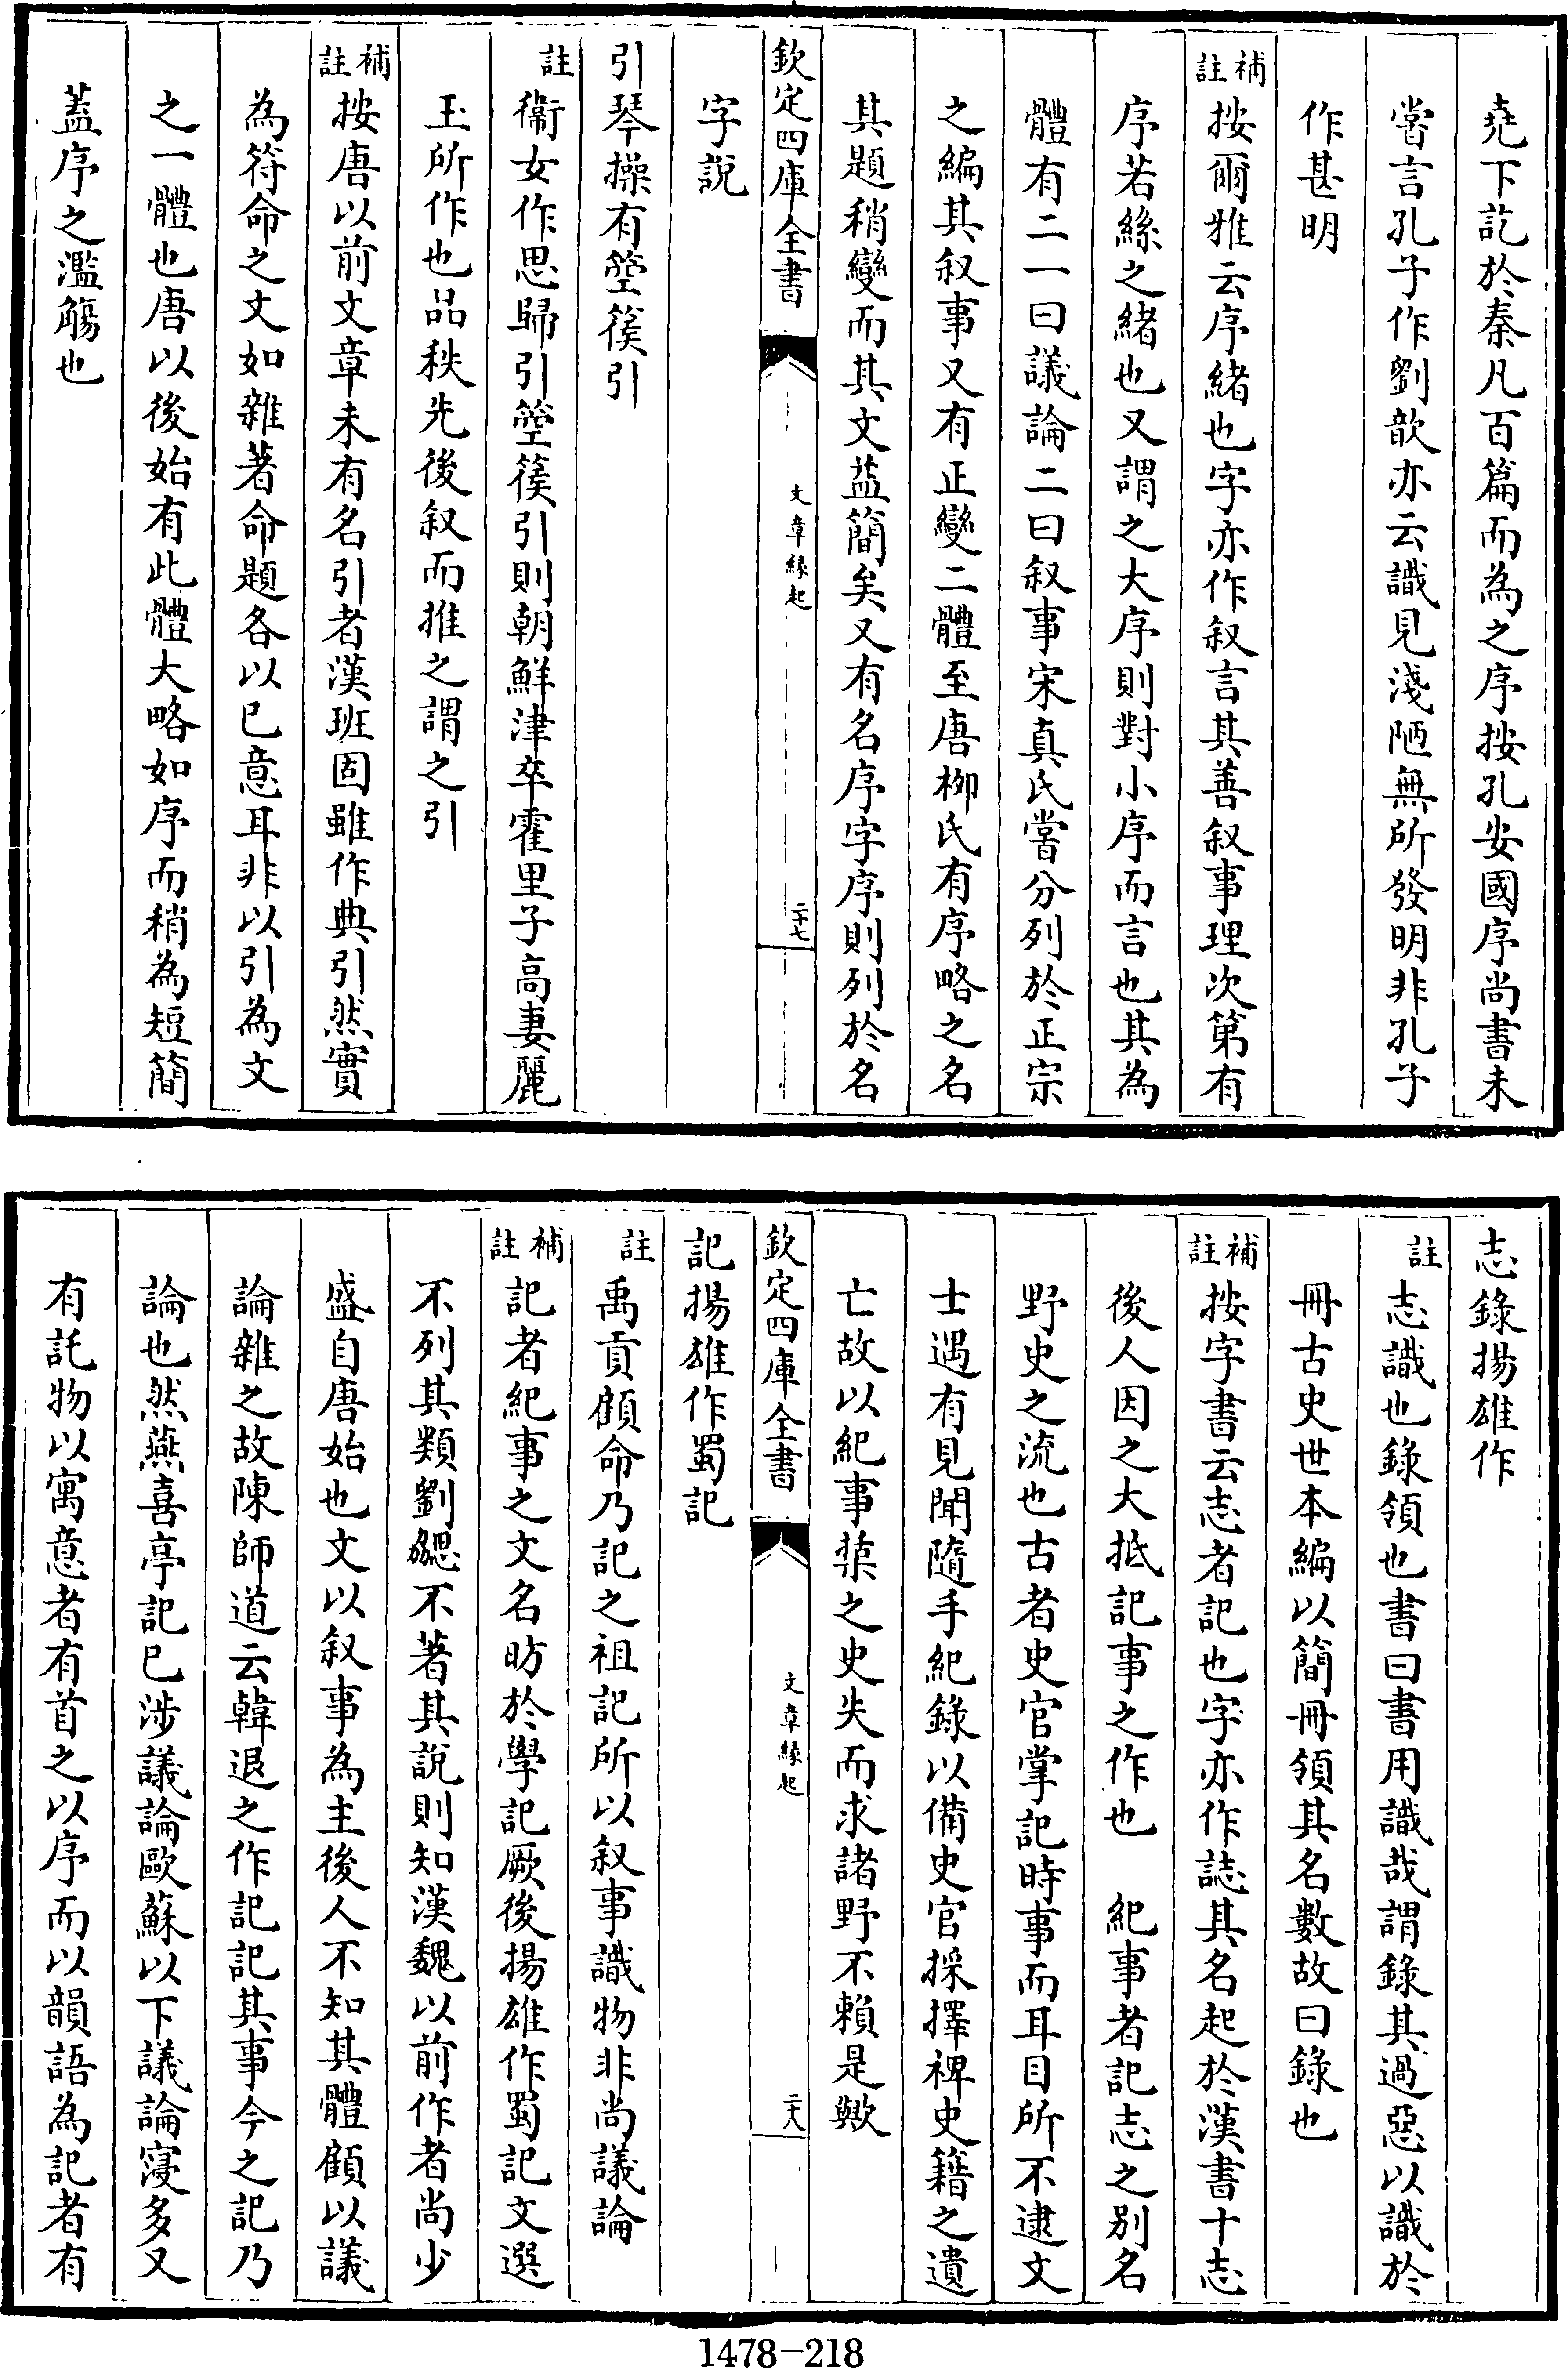 堯下訖於秦凡百篇而為之序按孔安國序尚書未
嘗言孔子作劉歆亦云識見淺陋無所發明非孔子
作甚明
補註按爾雅云序緒也字亦作叙言其善叙事理次第有
序若絲之緒也又謂之大序則對小序而言也其為
體有二一曰議論二曰叙事宋真氏嘗分列於正宗
之編其叙事又有正變二體至唐柳氏有序略之名
其題稍變而其文益簡矣又有名序字序則列於名
欽定四庫全書
文章緣起
二十七
字說
引琴操有箜篌引
註衞女作思歸引箜篌引則朝鮮津卒霍里子高妻麗
玉所作也品秩先後叙而推之謂之引
補註按唐以前文章未有名引者漢班固雖作典引然實
為符命之文如雜著命題各以己意耳非以引為文
之一體也唐以後始有此體大略如序而稍為短簡
蓋序之濫觴也
志錄揚雄作
註志識也錄領也書曰書用識哉謂錄其過惡以識於
冊古史世本編以簡冊領其名數故曰錄也
補註按字書云志者記也字亦作誌其名起於漢書十志
後人因之大抵記事之作也　紀事者記志之別名
野史之流也古者史官掌記時事而耳目所不逮文
士遇有見聞隨手紀錄以備史官採擇裨史籍之遺
亡故以紀事槩之史失而求諸野不賴是歟
欽定四庫全書
文章緣起
二十八
記揚雄作蜀記
註禹貢顧命乃記之祖記所以叙事識物非尚議論
補註記者紀事之文名昉於學記厥後揚雄作蜀記文選
不列其類劉勰不著其說則知漢魏以前作者尚少
盛自唐始也文以叙事為主後人不知其體顧以議
論雜之故陳師道云韓退之作記記其事今之記乃
論也然燕喜亭記已涉議論歐蘇以下議論寖多又
有託物以寓意者有首之以序而以韻語為記者有
1478-218